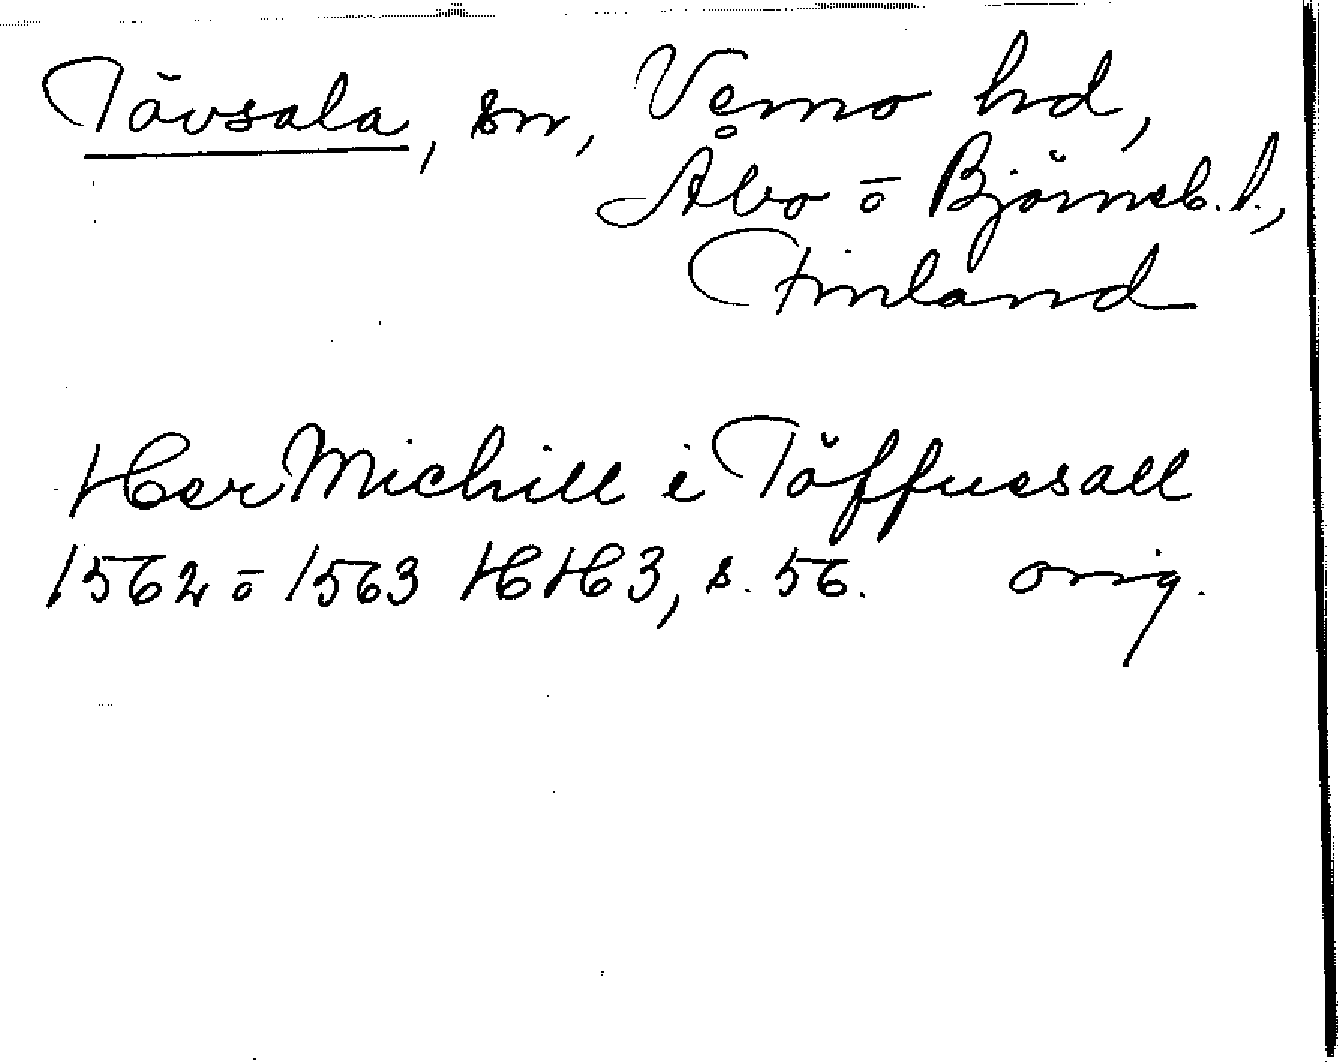 Tövsala, sn, Vemo hd,
Åbo o Björneb. l.,
Finland
Her Michill i Töffuesall
1562 o 1563 HH 3, s. 56. orig.